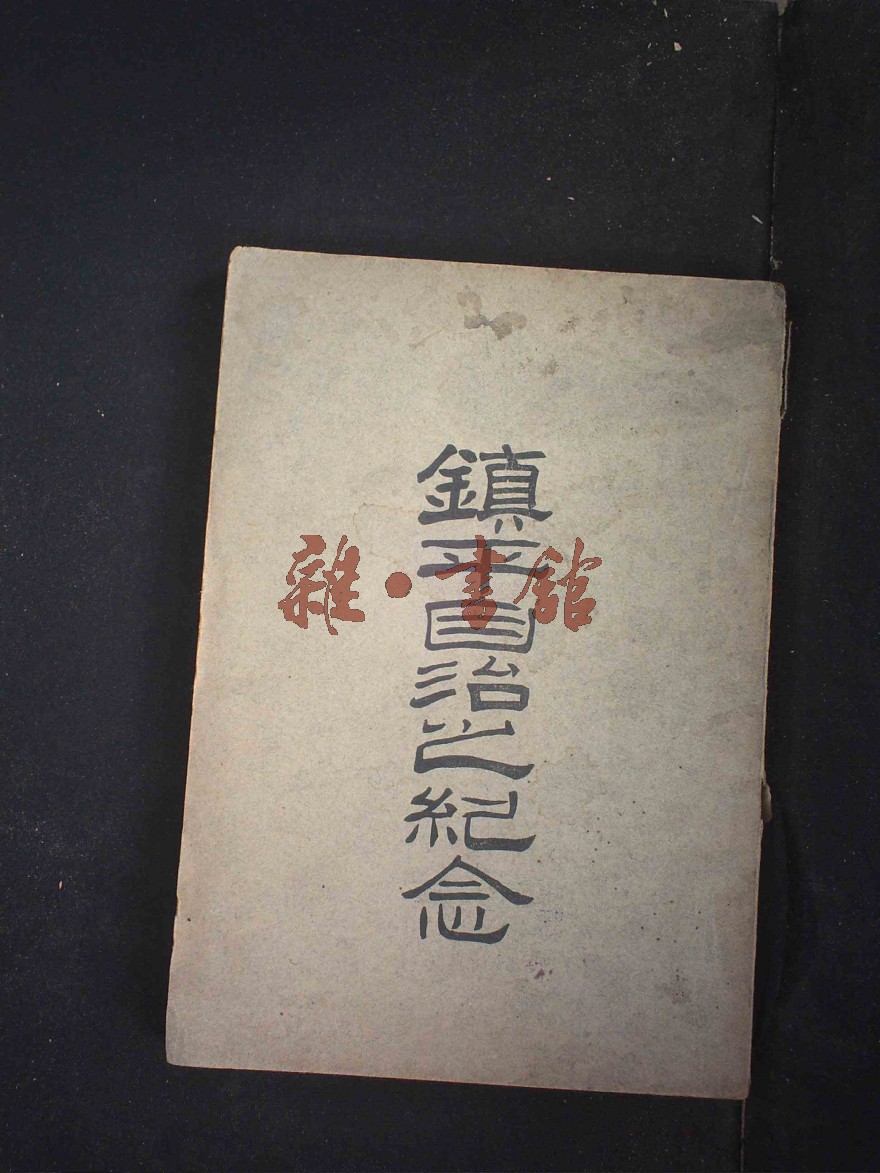 鎮平自治之紀念
雜·書館